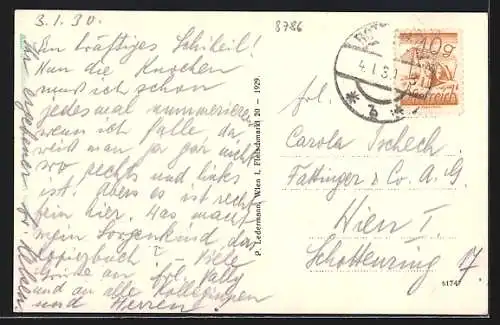 3.1.30.
8786
Ein kräftiges Schiheil!
Nun die Knochen
muß ich schon
jedesmal nummerieren
wenn ich falle da
weiß man ja gar nicht
wo rechts und links
ist! Aber es ist recht
fein hier. Was macht
mein Sorgenkind, das
Kopierbuch? Viele
Grüße an Frl. Vally
und an alle Kolleginnen
und Herren.
Ihr ergebener
P. Ledermann, Wien I, Fleischmarkt 20 — 1929.
4.I.30
10g
Österreich
Frl.
Carola Tschech
Fattinger & Co. A. G.
Wien I.
Schottenring 7.